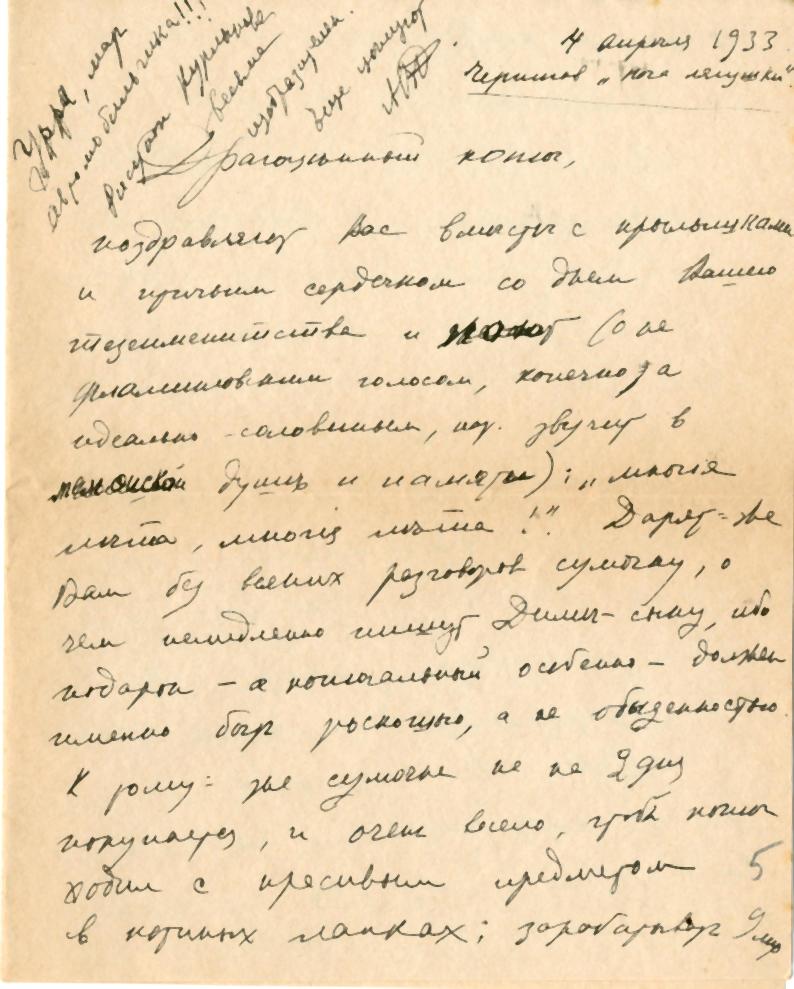 4 апреля 1933.
Черишев "нога лягушки".
Урра, мар
автомобильчика!!!
Рисунок Курлыкове
весьма
изобразителен.
Еще целуют
Драгоценный котыч,
поздравляют Вас вместе с крылышками
и прочьим сердечком со днем Вашего
тезоименитства и поют (о не
фламинговым голосом, конечно, а
идеально-соловьиным, кот. звучит в
душѣ и памяти): "многия
лѣта, многия лѣта!" Дарят-же
Вам без всяких разговоров сумочку, о
чем немедленно пишут Димы-сыну, ибо
подарок – а кошачальный особенно – должен
именно быть роскошью, а не обыденностью.
К тому-же сумочка не на 2 дня
покупается, и очень весело, чтоб котыч
ходил с красивым предметом
в котиных лапках; зарабатывают